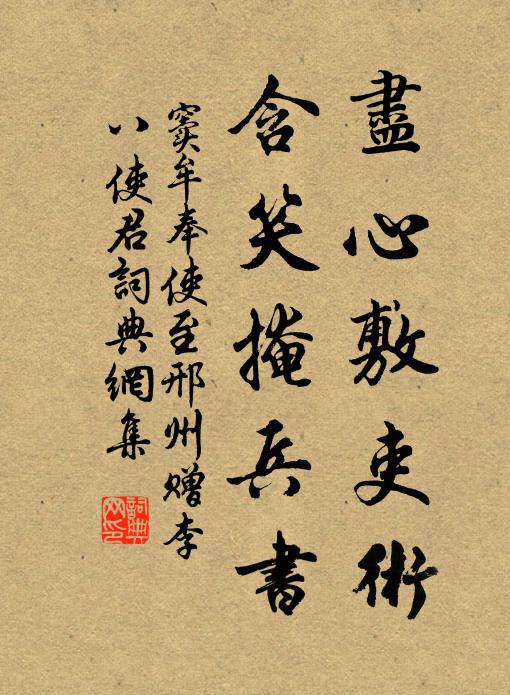 盡心敷吏術
含笑掩兵書
竇牟奉使至邢州贈李
八使君詞典網集
詞典
网印